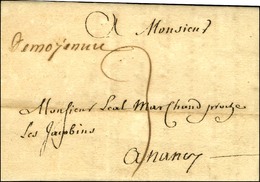 A Monsieur
Demoyenvic
3
Monsieur Leal Marchand proche
Les Jacobins
A nancy